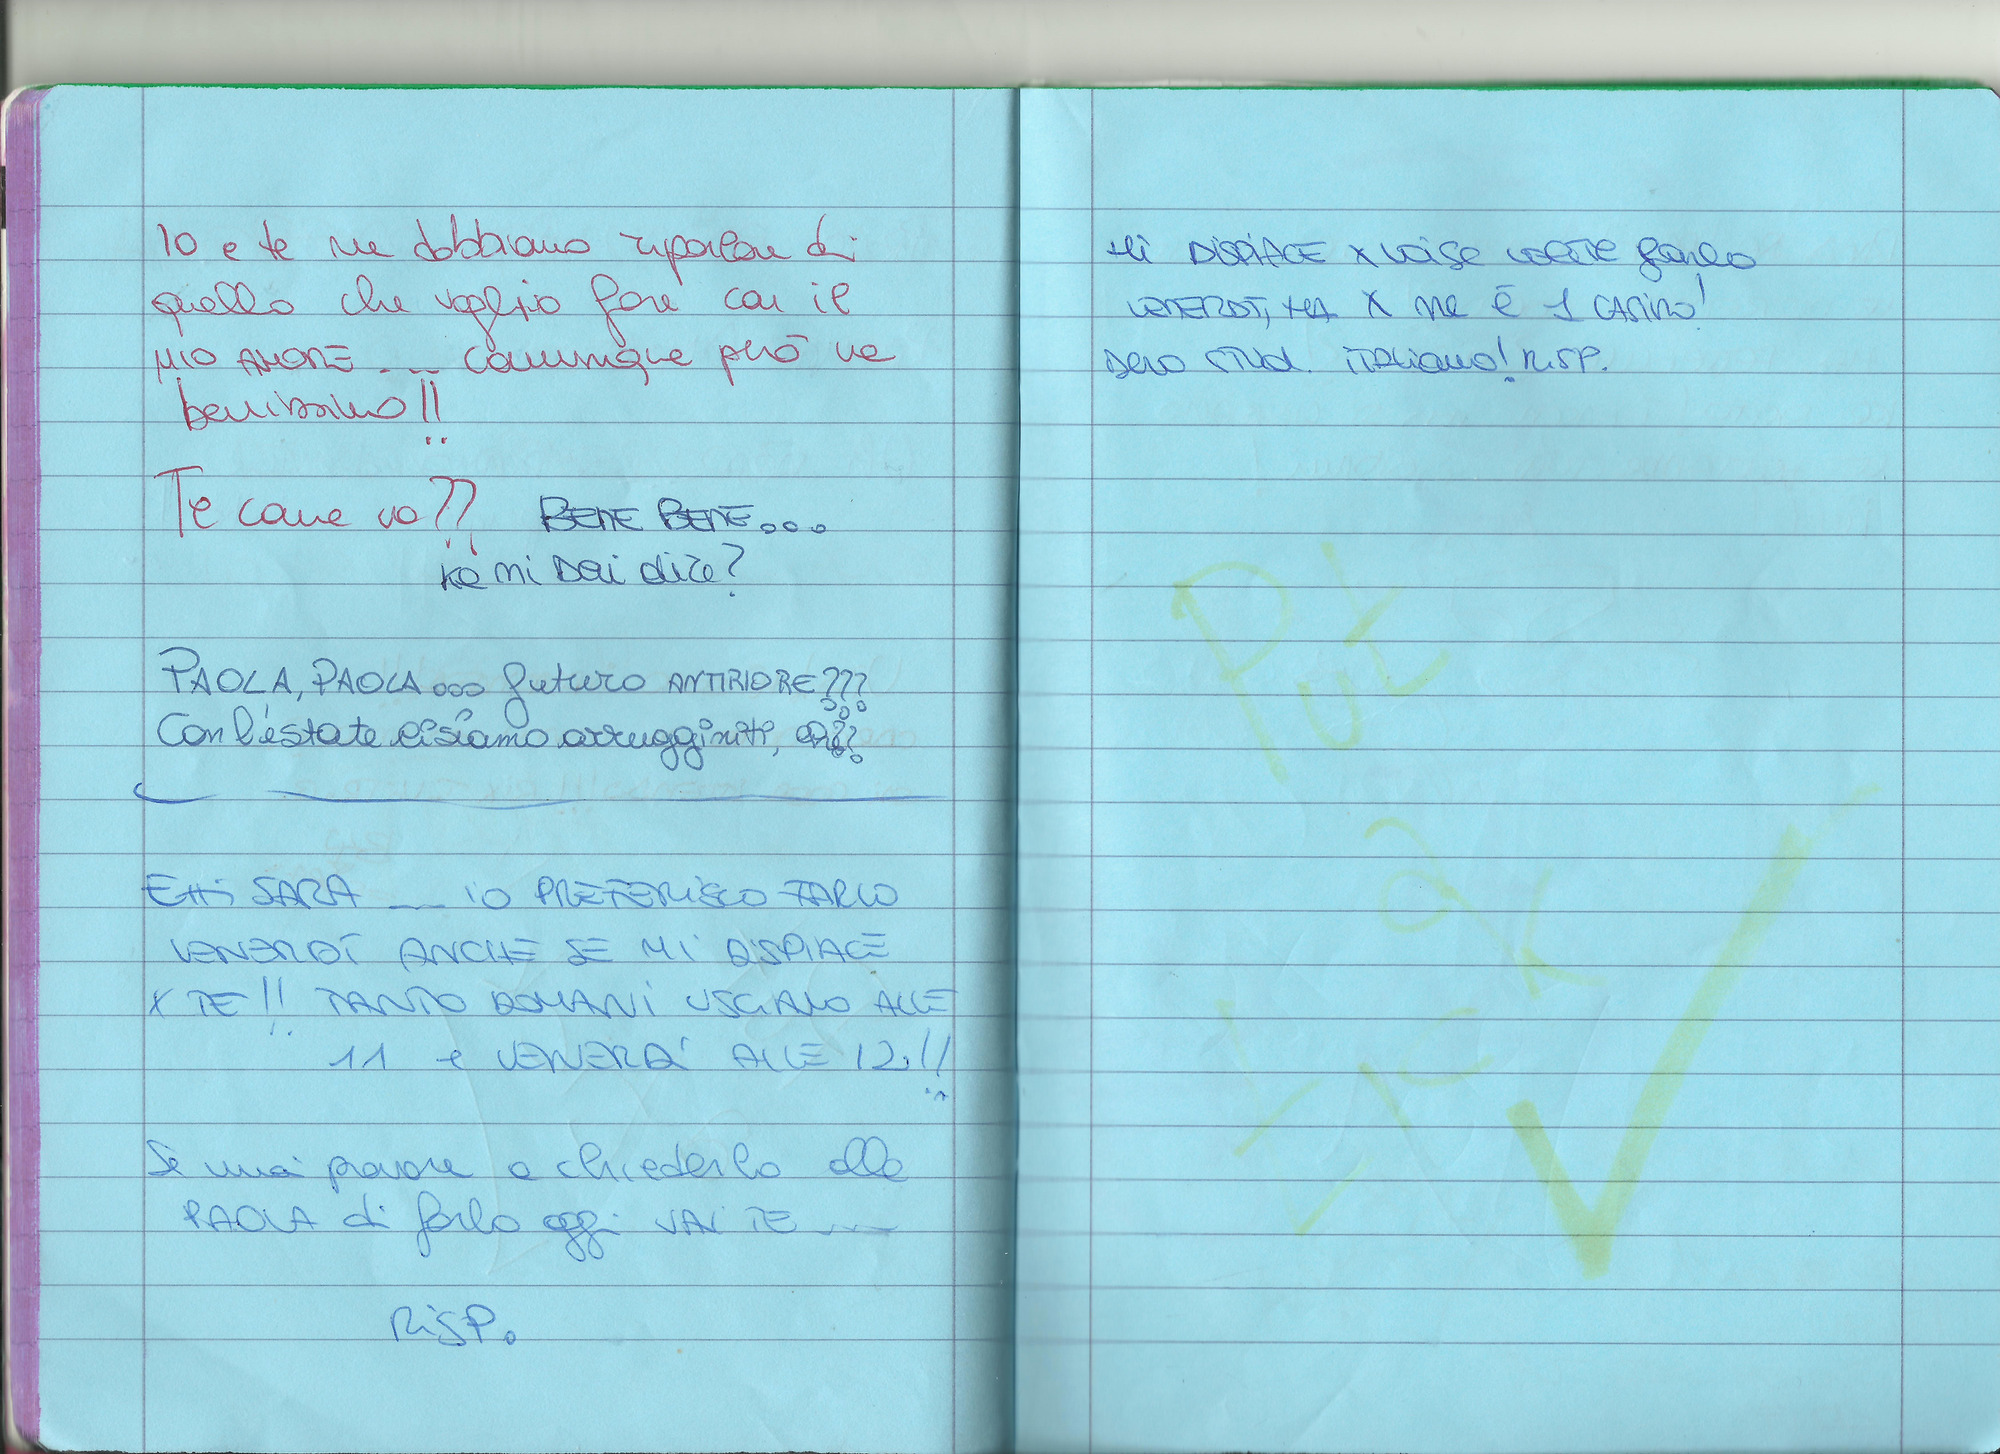 IO e te ne dobbiamo riparlare di
quello che voglio fare con il
MIO AMORE ... comunque però va
benissimo!!
Te come va?? BENE BENE...
ke mi Devi dire?
PAOLA, PAOLA... futuro ANTIRIORE???
Con l'estate ci siamo arrugginiti, eh??
EHI SARA ... io PREFERISCO FARLO
VENERDÌ ANCHE SE MI DISPIACE
X TE!! TANTO DOMANI USCIAMO ALLE
11 e VENERDÌ ALLE 12!!
Se vuoi provare a chiederlo alla
PAOLA di farlo oggi VAI TE ...
RISP.
Mi DISPIACE x voi se volete farlo
VENERDÌ, MA X me è 1 CASINO!
Devo STUD. ITALiano! RISP.
Put